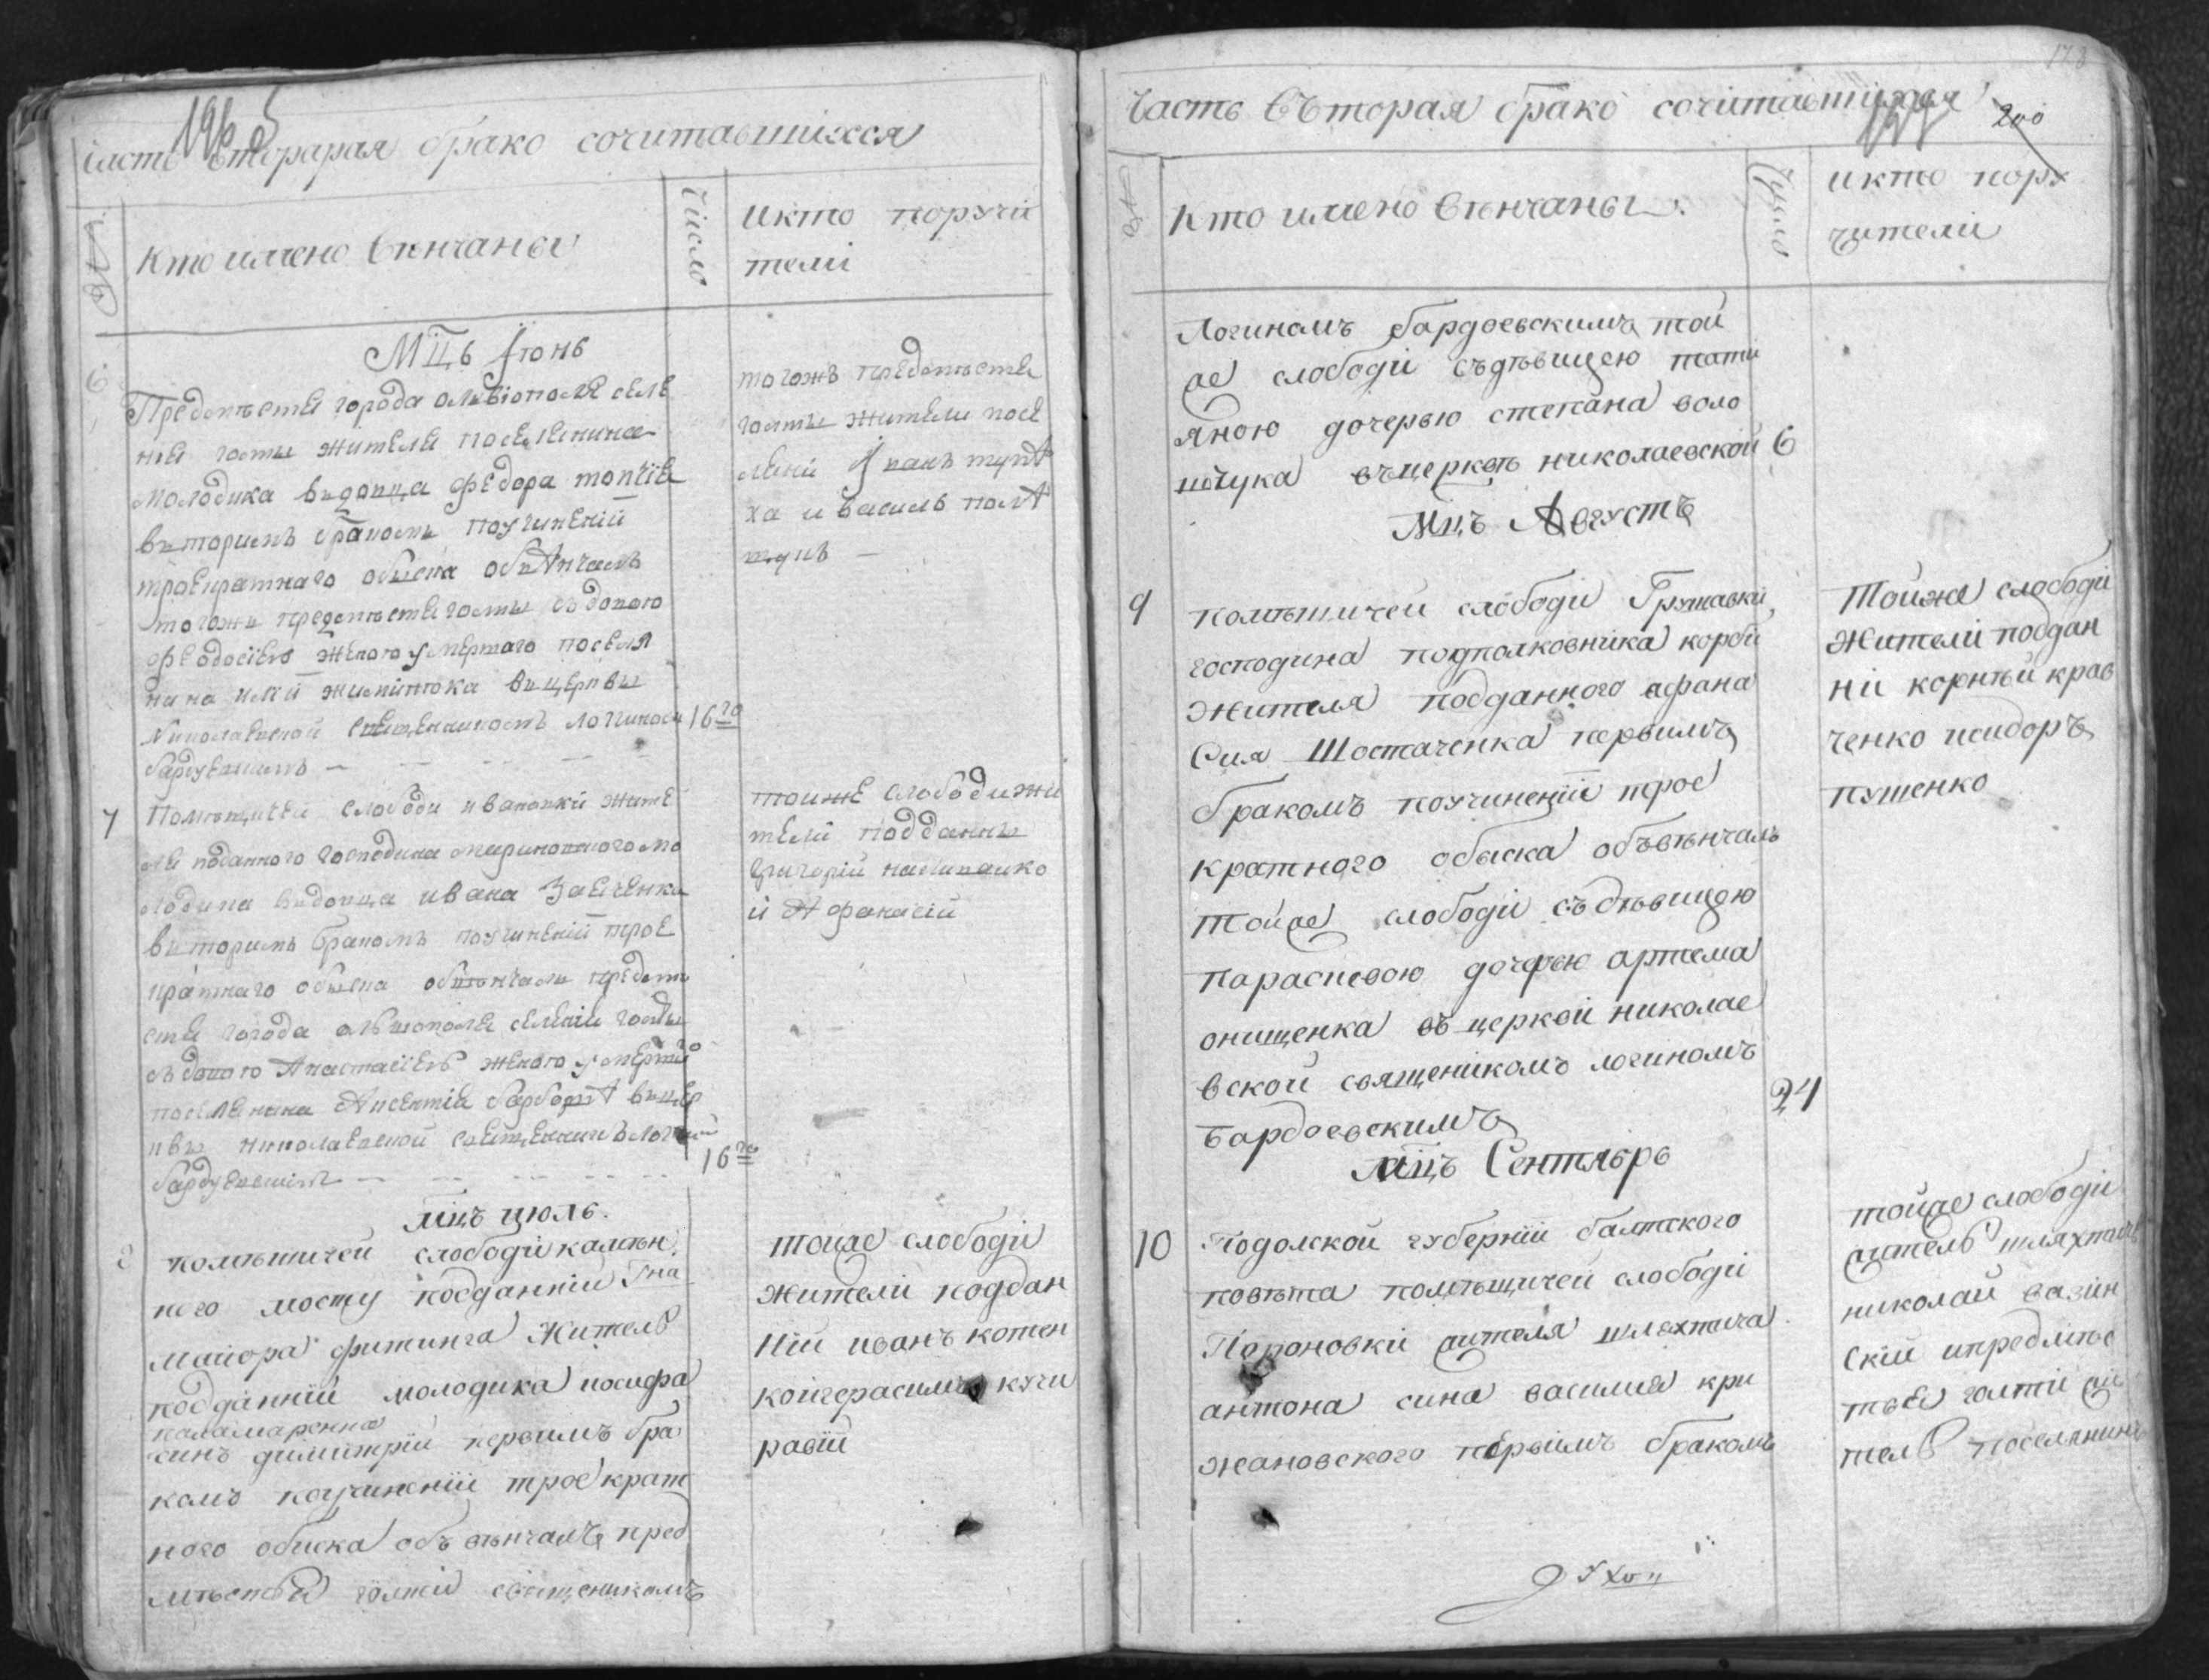 часть вторарая брако сочитавшихся
Кто имено венчаны
Число
и кто поручи
тели
Мцъ Іюнь
6
Предмѣстя города олвіополя селе
ния голты жителя поселенина
молодика вдовца федора
вторимъ бракомъ поучинении
троекратнаго обыска обвенчалъ
тогожъ предмѣстя голты вдовою
феодосіею женою умершаго поселя
нина
Николаевской священникомъ логиномъ 16го
бардуевскимъ
тогожъ предмѣстя
голты жители посе
ляни
ха и василь
7
Помѣщичей слободи ивановки жите
ля поданного господина
лодика вдовца ивана Заиченка
вторимъ бракомъ поучинений трое
кратнаго обыска обвѣнчалъ предмѣ
стя города олвиополя селения голты
вдовою Анастасіею женою умершаго
поселянина
квы николаевской священникъ логинъ
бардуевский
16го
тоиже слободи жи
тели подданны
григорій
й Афанасій
Мцъ июль.
8
помѣщичей слободи камѣн
ного мосту подданний Гна
майора фитинга житель
подданний молодика иосифа
паламаренка
синъ димитрій первимъ бра
комъ поучинении трое крат
ного обиска объвѣнчалъ пред
мѣстья голти священикомъ
тойже слободи
жители поддан
ний иванъ котен
ко и герасимъ кучи
равий
Часть въторая брако сочитавшихся
200
178
Кто имено вѣнчаны
Число
и кто пору
чители
Логиномъ бардоевскимъ той
же слободи съдѣвицею тати
яною дочерью степана воло
щука въцерквѣ николаевской 6
Мцъ Августъ
9
помѣщичей слободи Грушавки
господина подполковника корби
жителя подданного афана
сия Шостаченка первимъ
бракомъ поучинений трое
кратного обыска объвѣнчалъ
тойже слободи съдѣвицею
параскевою дочерю артема
онищенка въ церквѣ николае
вской священикомъ логиномъ
бардоевскимъ
24
Тойже слободи
жители поддан
ни корнѣй крав
ченко исидоръ
пушенко
Мцъ Сентябрь
10
Подолской губерніи балтского
повѣта помѣщичей слободи
жителя шляхтича
антона сина василия кри
жановского первимъ бракомъ
тойже слободи
житель шляхтичъ
николай вазин
ский ипредмѣс
тья голти жи
тель поселянинъ